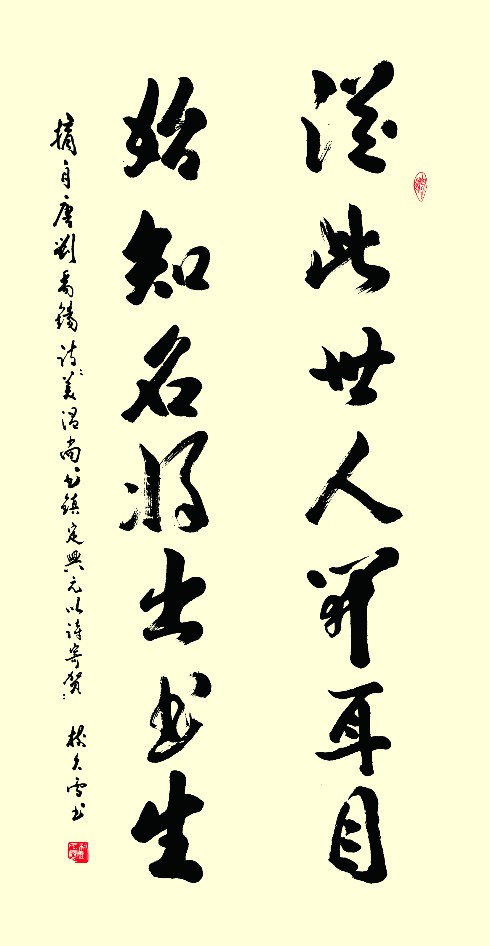 從此世人開耳目
始知名將出書生
摘自唐劉禹錫詩美溫尚書鎮定興元以詩寄賀